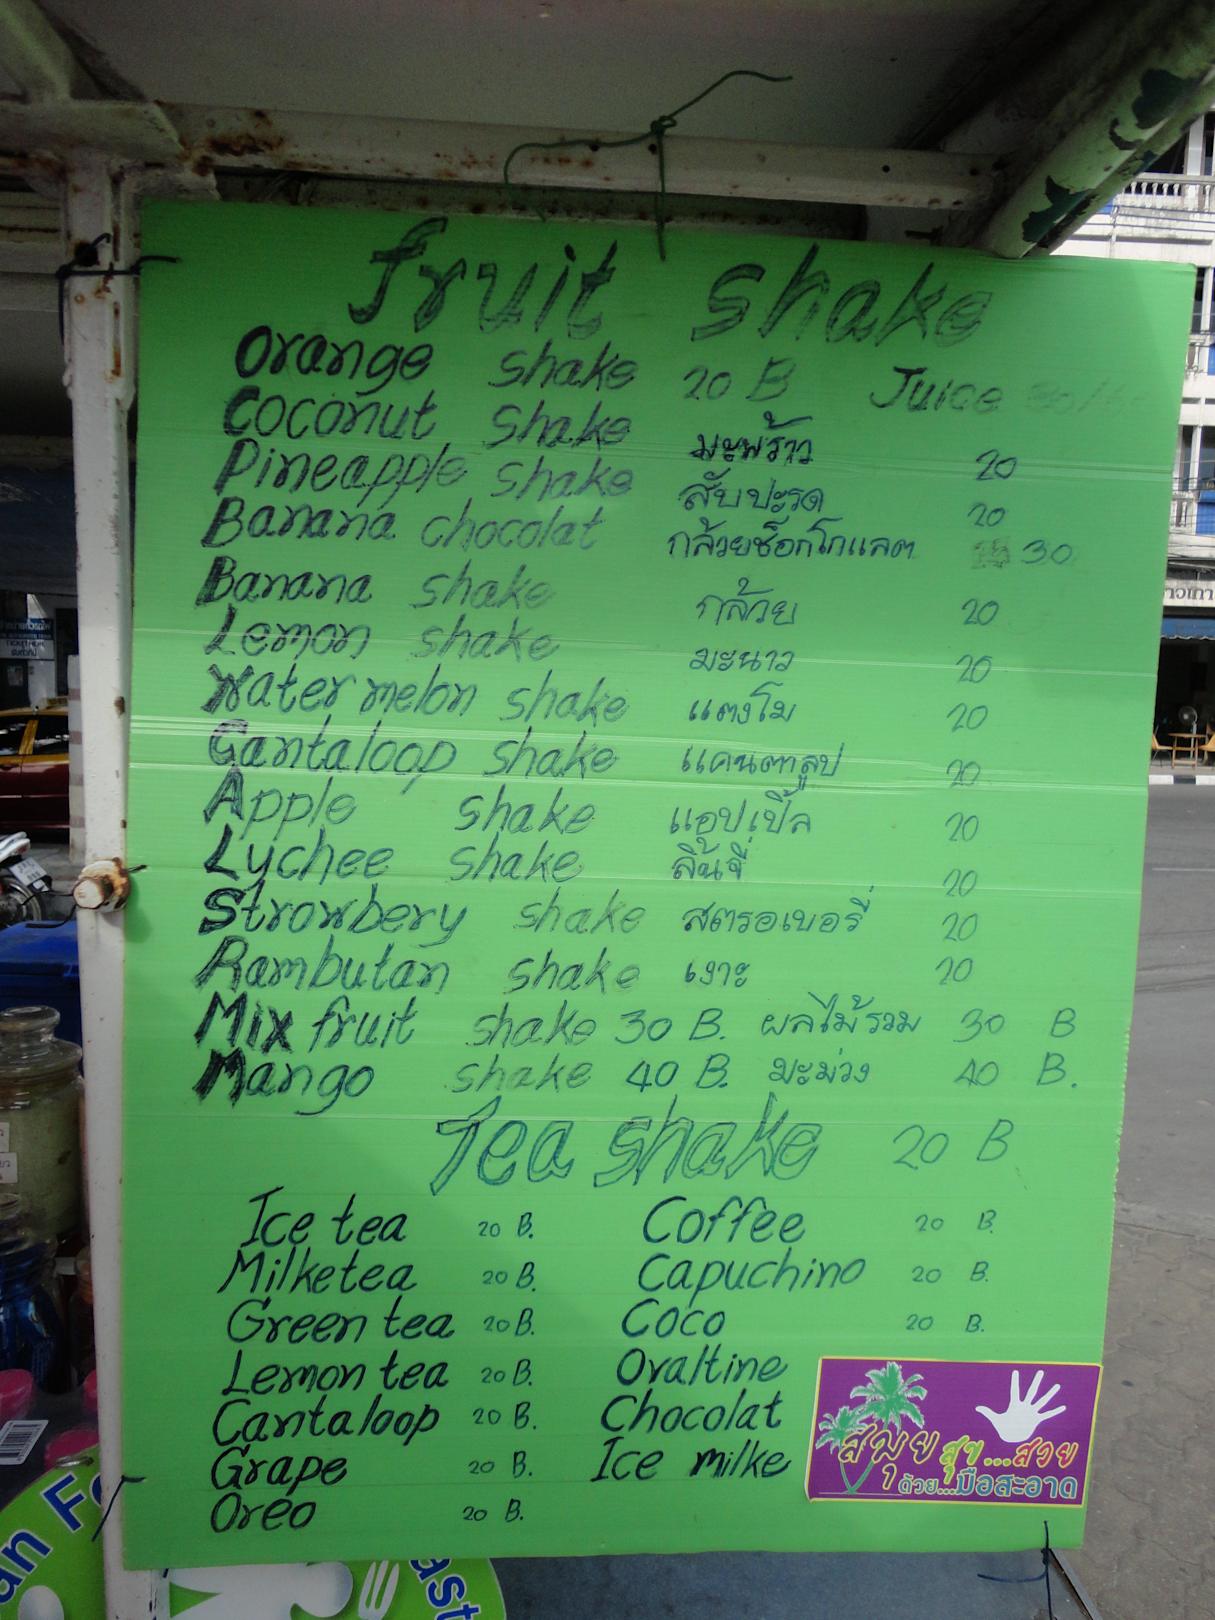 fruit shake
Orange shake 20 B Juice
Coconut shake มะพร้าว 20
Pineapple shake สับปะรด 20
Banana chocolat กล้วยช็อกโกแลต 30
Banana shake กล้วย 20
Lemon shake มะนาว 20
Water melon shake แตงโม 20
Cantaloop shake แคนตาลูป 20
Apple shake แอปเปิ้ล 20
Lychee shake ลิ้นจี่ 20
Strowbery shake สตรอเบอรี่ 20
Rambutan shake เงาะ 20
Mix fruit shake 30 B. ผลไม้รวม 30 B
Mango shake 40 B. มะม่วง 40 B.
Tea shake 20 B
Ice tea 20 B. Coffee 20 B.
Milketea 20 B. Capuchino 20 B.
Green tea 20 B. Coco 20 B.
Lemon tea 20 B. Ovaltine
Cantaloop 20 B. Chocolat
Grape 20 B. Ice milke
Oreo 20 B.
สมุย สุข...สวย
ด้วย...มือสะอาด